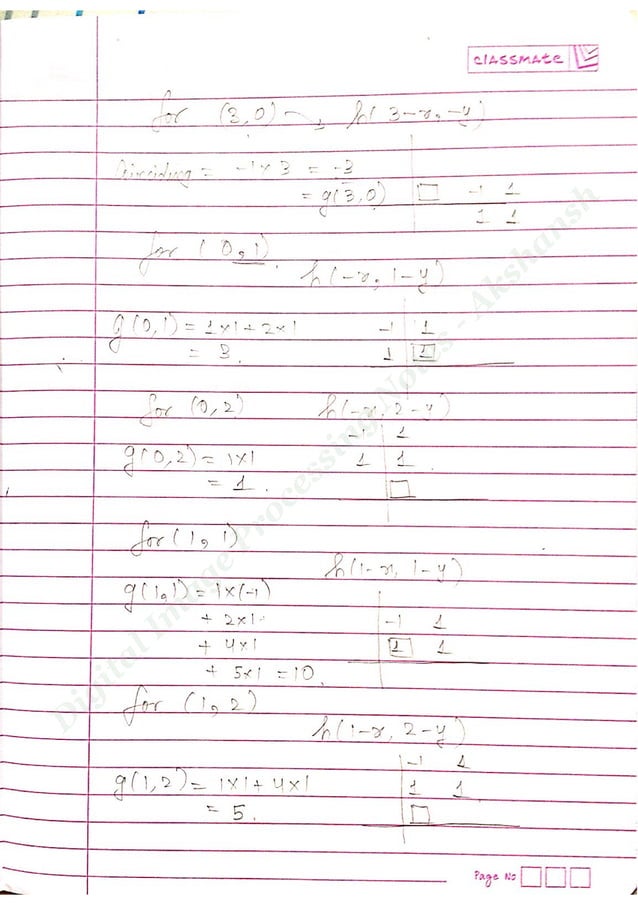 classmate
for (3,0) → h(3-x, -y)
Coinciding = -1×3 = -3
= g(3,0) □ -1 1
1 1
for (0,1)
h(-x, 1-y)
g(0,1) = 1×1 + 2×1 -1 1
= 3. 1 1
for (0,2) h(-x, 2-y)
-1 1
g(0,2) = 1×1 1 1
= 1. □
for (1,1)
h(1-x, 1-y)
g(1,1) = 1×(-1)
+ 2×1 -1 1
+ 4×1 1 1
+ 5×1 = 10.
for (1,2)
h(1-x, 2-y)
-1 1
g(1,2) = 1×1 + 4×1 1 1
= 5. □
Page No
Digital Image Processing Notes - Akshansh